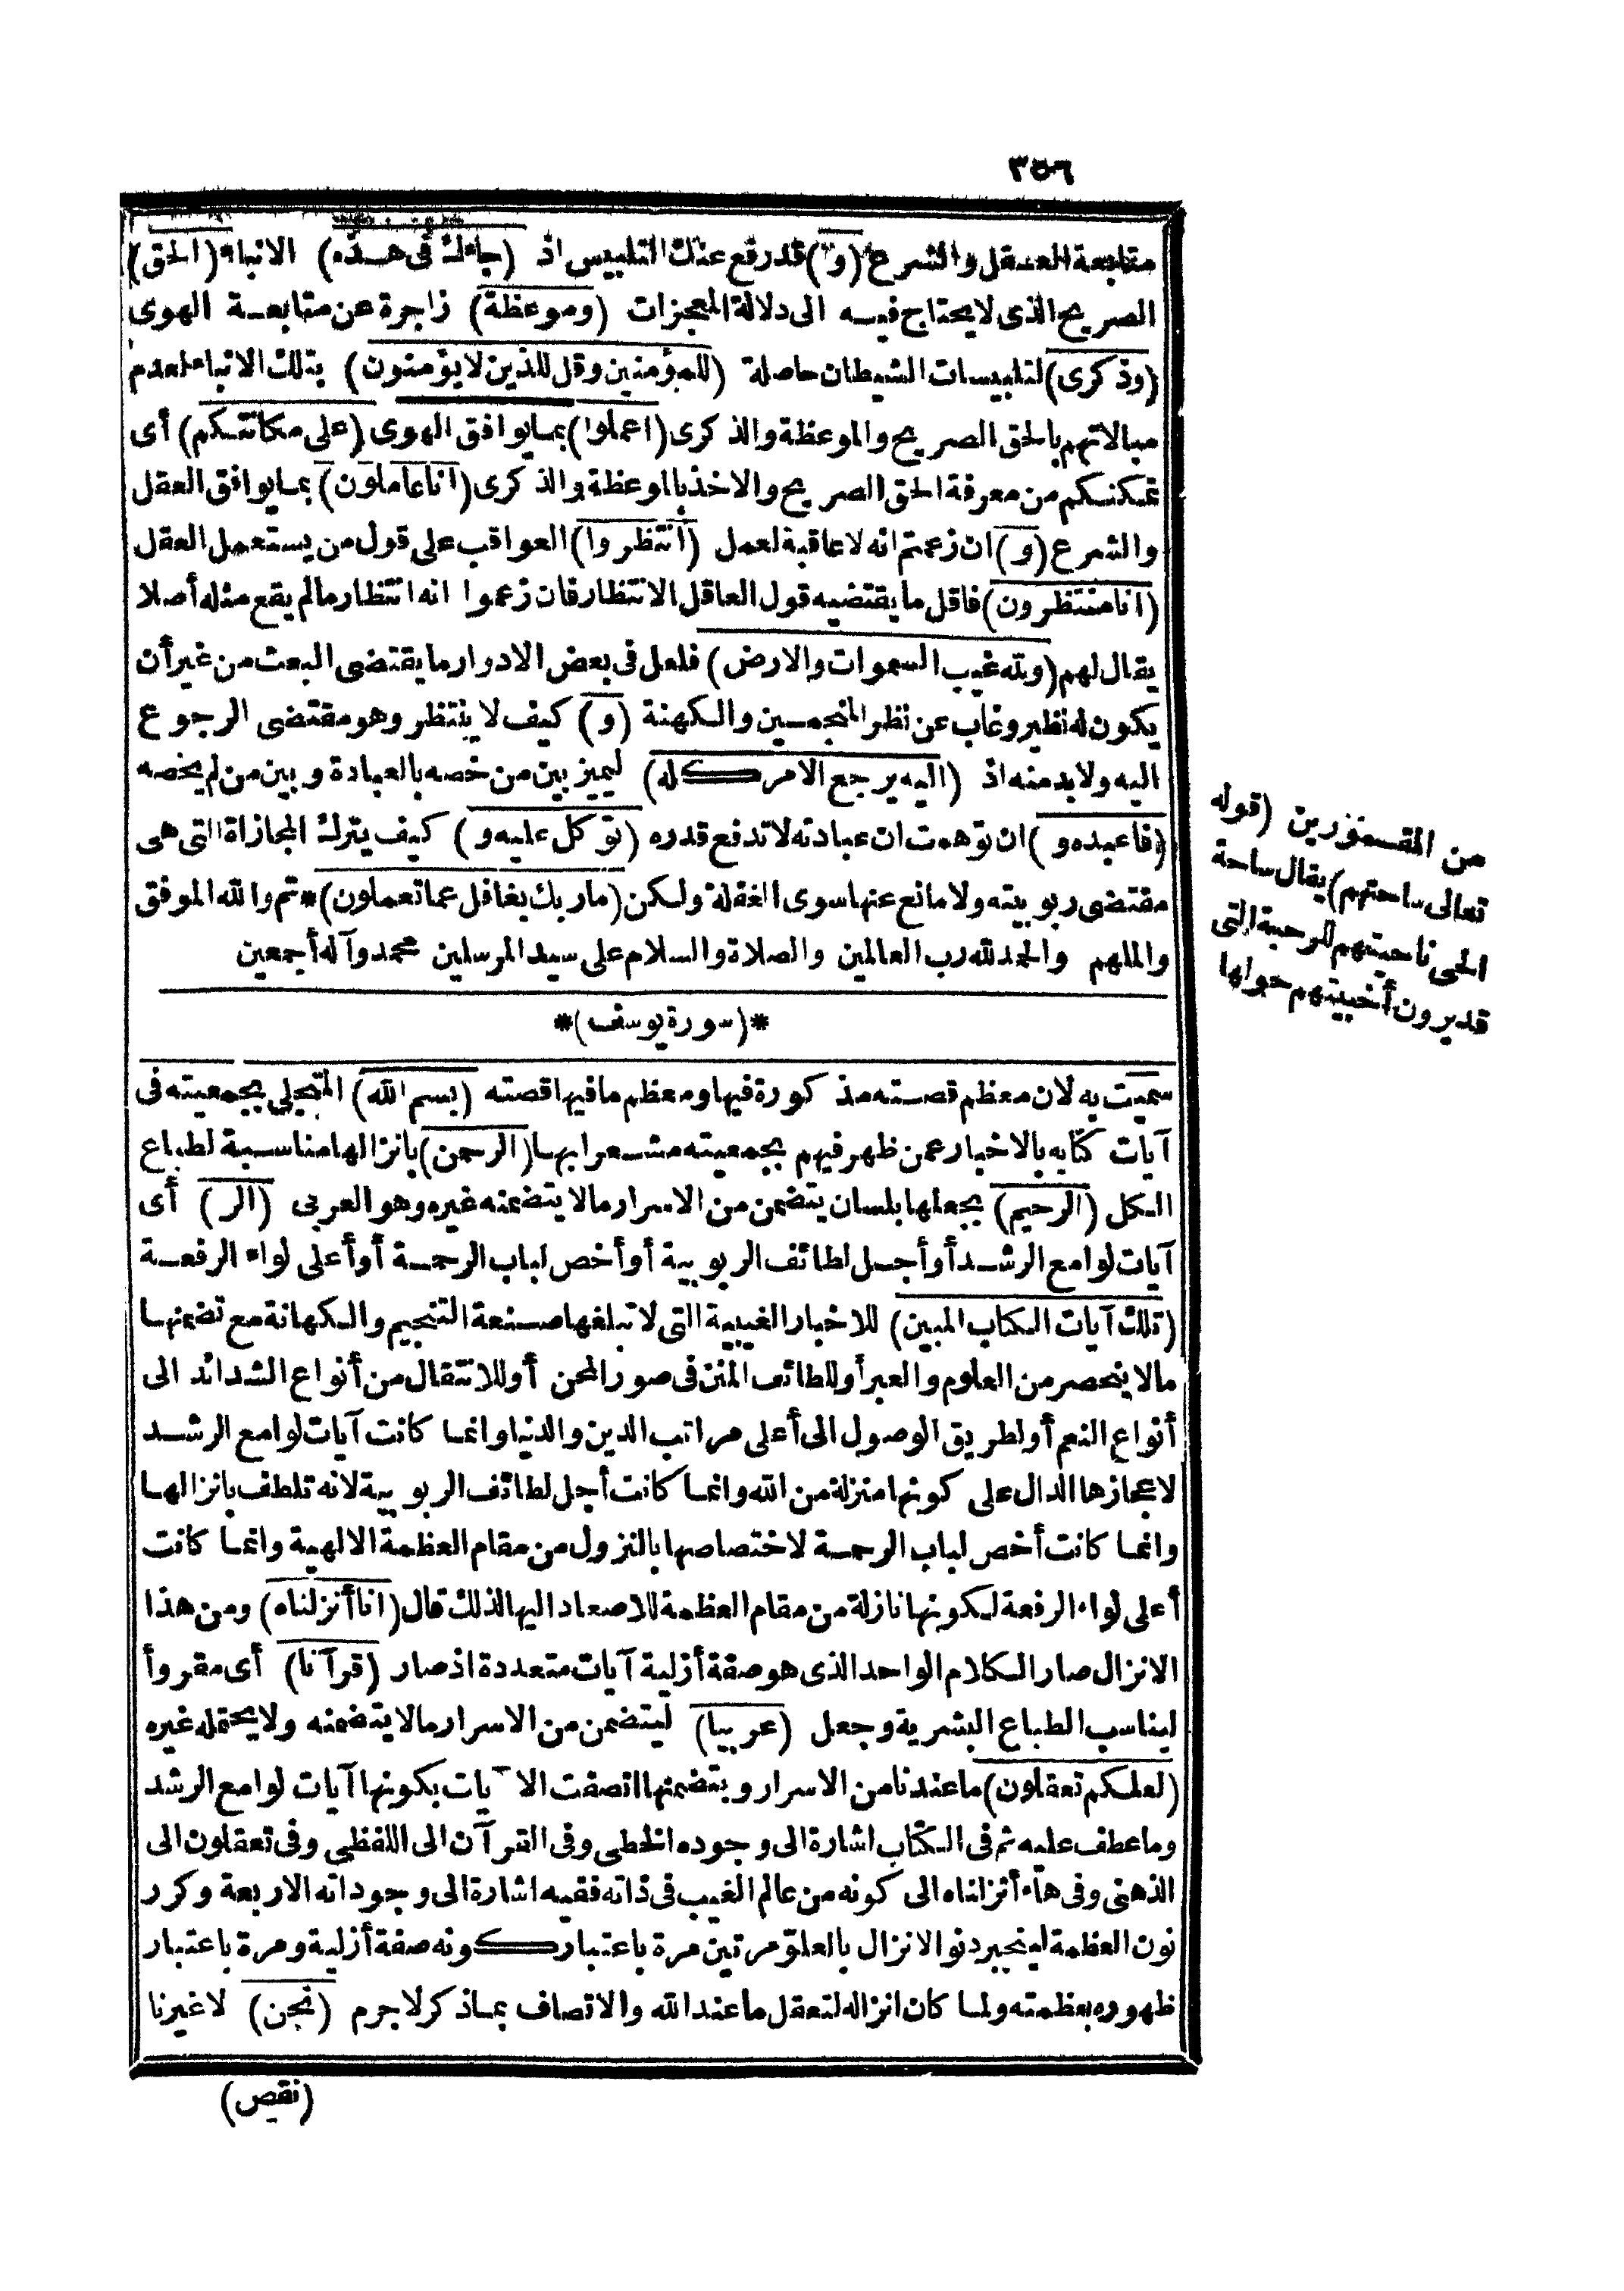 ٣٥٦
متابعة العقل والشرع (و) قد رفع عنك التلبيس اذ (جاءك فى هذه) الانباء (الحق)
الصريح الذى لا يحتاج فيه الى دلالة المعجزات (وموعظة) زاجرة عن متابعة الهوى
(وذكرى) لتلبيسات الشيطان حاصلة (للمؤمنين وقل للذين لا يؤمنون) بتلك الانباء لعدم
مبالاتهم بالحق الصريح والموعظة والذكرى (اعملوا) بما يوافق الهوى (على مكانتكم) أى
تمكنكم من معرفة الحق الصريح والاخذ بالموعظة والذكرى (انا عاملون) بما يوافق العقل
والشرع (و) ان زعمتم انه لا عاقبة لعمل (انتظروا) العواقب على قول من يستعمل العقل
(انا منتظرون) فاقل ما يقتضيه قول العاقل الانتظار فان زعموا انه انتظار ما لم يقع مثله أصلا
يقال لهم (ولله غيب السموات والارض) فلعل فى بعض الادوار ما يقتضى البعث من غير أن
يكون له نظير وغاب عن نظر المنجمين والكهنة (و) كيف لا ينتظر وهو مقتضى الرجوع
اليه ولا بد منه اذ (اليه يرجع الامر كله) ليميز بين من خصه بالعبادة وبين من لم يخصه
(فاعبده و) ان توهمت ان عبادته لا تدفع قدره (توكل عليه و) كيف يترك المجازاة التى هى
مقتضى ربوبيته ولا مانع عنها سوى الغفلة ولكن (ما ربك بغافل عما تعملون) * تم والله الموفق
والملهم والحمد لله رب العالمين والصلاة والسلام على سيد المرسلين محمد وآله أجمعين
من المقسمورين (قوله
تعالى ساحتهم) يقال ساحة
الحى ناحيتهم للرحبة التى
قديرون أخبيتهم حولها
*(سورة يوسف)*
سميت به لان معظم قصته مذكورة فيها ومعظم ما فيها قصته (بسم الله) المتجلى بجمعيته فى
آيات كتابه بالاخبار عمن ظهر فيهم بجمعيته مشعرا بها (الرحمن) بانزالها مناسبة لطباع
الكل (الرحيم) بجعلها بلسان يتضمن من الاسرار مالا يتضمنه غيره وهو العربى (الر) أى
آيات لوامع الرشد أو أجل لطائف الربوبية أو أخص لباب الرحمة أو أعلى لواء الرفعة
(تلك آيات الكتاب المبين) للاخبار الغيبية التى لا تبلغها صنعة التنجيم والكهانة مع تضمنها
مالا ينحصر من العلوم والعبر أو للطائف المنن فى صور المحن أو للانتقال من أنواع الشدائد الى
أنواع النعم أو لطريق الوصول الى أعلى مراتب الدين والدنيا وانما كانت آيات لوامع الرشد
لاعجازها الدال على كونها منزلة من الله وانما كانت أجل لطائف الربوبية لانه تلطف بانزالها
وانما كانت أخص لباب الرحمة لاختصاصها بالنزول من مقام العظمة الالهية وانما كانت
أعلى لواء الرفعة لكونها نازلة من مقام العظمة للاصعاد اليها لذلك قال (انا أنزلناه) ومن هذا
الانزال صار الكلام الواحد الذى هو صفة أزلية آيات متعددة اذ صار (قرآنا) أى مقروأ
ليناسب الطباع البشرية وجعل (عربيا) ليتضمن من الاسرار مالا يتضمنه ولا يحتمله غيره
(لعلكم تعقلون) ما عندنا من الاسرار وبتضمنها اتصفت الآيات بكونها آيات لوامع الرشد
وما عطف عليه ثم فى الكتاب اشارة الى وجوده الخطى وفى القرآن الى اللفظى وفى تعقلون الى
الذهنى وفى هاء أنزلناه الى كونه من عالم الغيب فى ذاته ففيه اشارة الى وجوداته الاربعة وكرر
نون العظمة لينجبر دنو الانزال بالعلو مرتين مرة باعتبار كونه صفة أزلية ومرة باعتبار
ظهوره بعظمته ولما كان انزاله لتعقل ما عند الله والاتصاف بما ذكر لا جرم (نحن) لا غيرنا
(نقص)